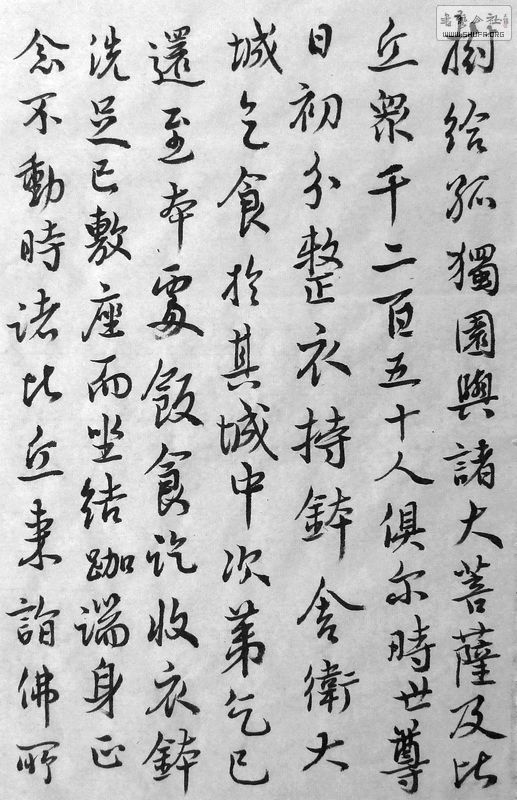 樹給孤獨園與諸大菩薩及比
丘衆千二百五十人俱尔時世尊
日初分整衣持鉢舍衛大
城乞食於其城中次第乞已
還至本處飯食訖收衣鉢
洗足已敷座而坐結跏端身正
念不動時諸比丘来詣佛所
WWW.SHUFA.ORG